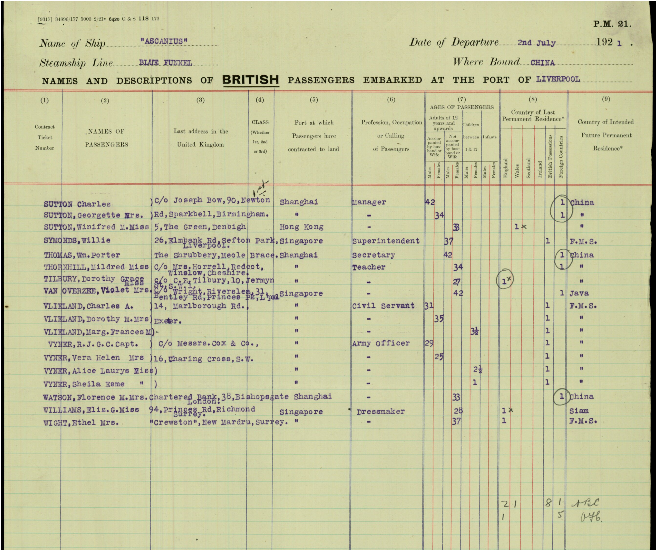 P.M. 21.
Name of Ship "ASCANIUS" Date of Departure 2nd July 1921.
Steamship Line BLUE FUNNEL Where Bound CHINA
NAMES AND DESCRIPTIONS OF BRITISH PASSENGERS EMBARKED AT THE PORT OF LIVERPOOL
(1) (2) (3) (4) (5) (6) (7) (8) (9)
Contract Ticket Number
NAMES OF PASSENGERS
Last address in the United Kingdom
CLASS
Port at which Passengers have contracted to land
Profession, Occupation or Calling of Passengers
AGES OF PASSENGERS
Adults of 12 years and upwards
Country of Last Permanent Residence*
England Wales Scotland Ireland British Possessions Foreign Countries
Country of Intended Future Permanent Residence*
SUTTON Charles )C/o Joseph Bow,90,Newton Shanghai Manager 42 1 China
SUTTON,Georgette Mrs. )Rd,Sparkhell,Birmingham. " - 34 1 "
SUTTON,Winifred M.Miss 5,The Green,Denbigh Hong Kong - 33 1x "
SYMONDS,Willie 26,Elmbank Rd,Sefton Park, Singapore Superintendent 37 1 F.M.S.
Liverpool.
THOMAS,Wm.Porter The Shrubbery,Meole Brace, Shanghai Secretary 42 1 China
THORNHILL,Mildred Miss C/o Mrs.Horrell, " Teacher 34 1 "
TILBURY,Dorothy Grace C/o C.F.Tilbury,10,Jermyn " - 27 1x "
VAN OVERZEE,Violet Mrs. Singapore - 42 1 Java
VLIELAND,Charles A. )14, Marlborough Rd., " Civil Servant 31 1 F.M.S.
VLIELAND,Dorothy M.Mrs) Exeter. " - 35 1 "
VLIELAND,Marg.Frances M)- " - 3½ 1 "
VYNER,R.J.G.C.Capt. ) C/o Messrs.Cox & Co., " Army Officer 29 1 "
VYNER,Vera Helen Mrs )16,Charing Cross,S.W. " - 25 1 "
VYNER, Alice Laurye Miss) " - 2½ 1 "
VYNER,Sheila Esme " ) " - 1 1 "
WATSON,Florence M.Mrs. Chartered Bank,38,Bishopsgate Shanghai - 33 1 China
London.
WILLIAMS,Eliz.G.Miss 94,Princes Rd,Richmond Singapore Dressmaker 26 1x Siam
Surrey.
WIGHT,Ethel Mrs. "Crewston",New Surrey. " - 37 1 F.M.S.
2 1 8 1
1 5